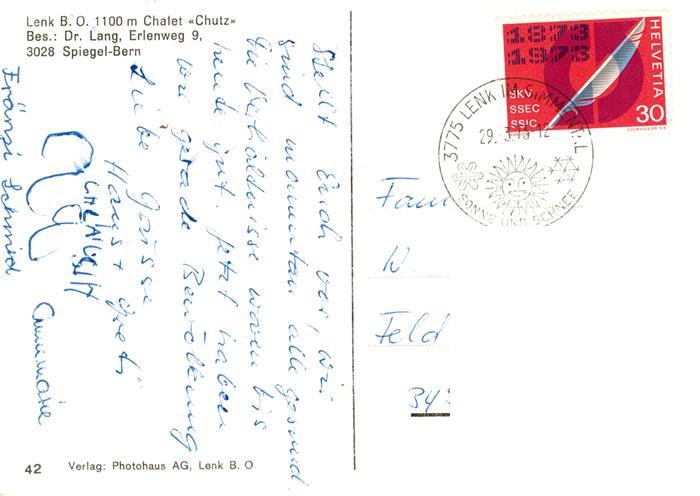 Lenk B. O. 1100 m Chalet «Chutz»
Bes.: Dr. Lang, Erlenweg 9,
3028 Spiegel-Bern
Stellt Euch vor, wir
sind momentan alle gesund.
Die Verhältnisse waren bis
heute gut. Jetzt haben
wir gerade Bewölkung
Liebe Grüsse
Hans +
Annemarie
Fränzi Schmid
1873
1973
SKV
SSEC
SSIC
HELVETIA
30
COURVOISIER S.A.
3775 LENK IM SIMMENTAL
29. 3. 73-12
SONNE UND SCHNEE
Fam
W.
Feld
34
42 Verlag: Photohaus AG, Lenk B. O